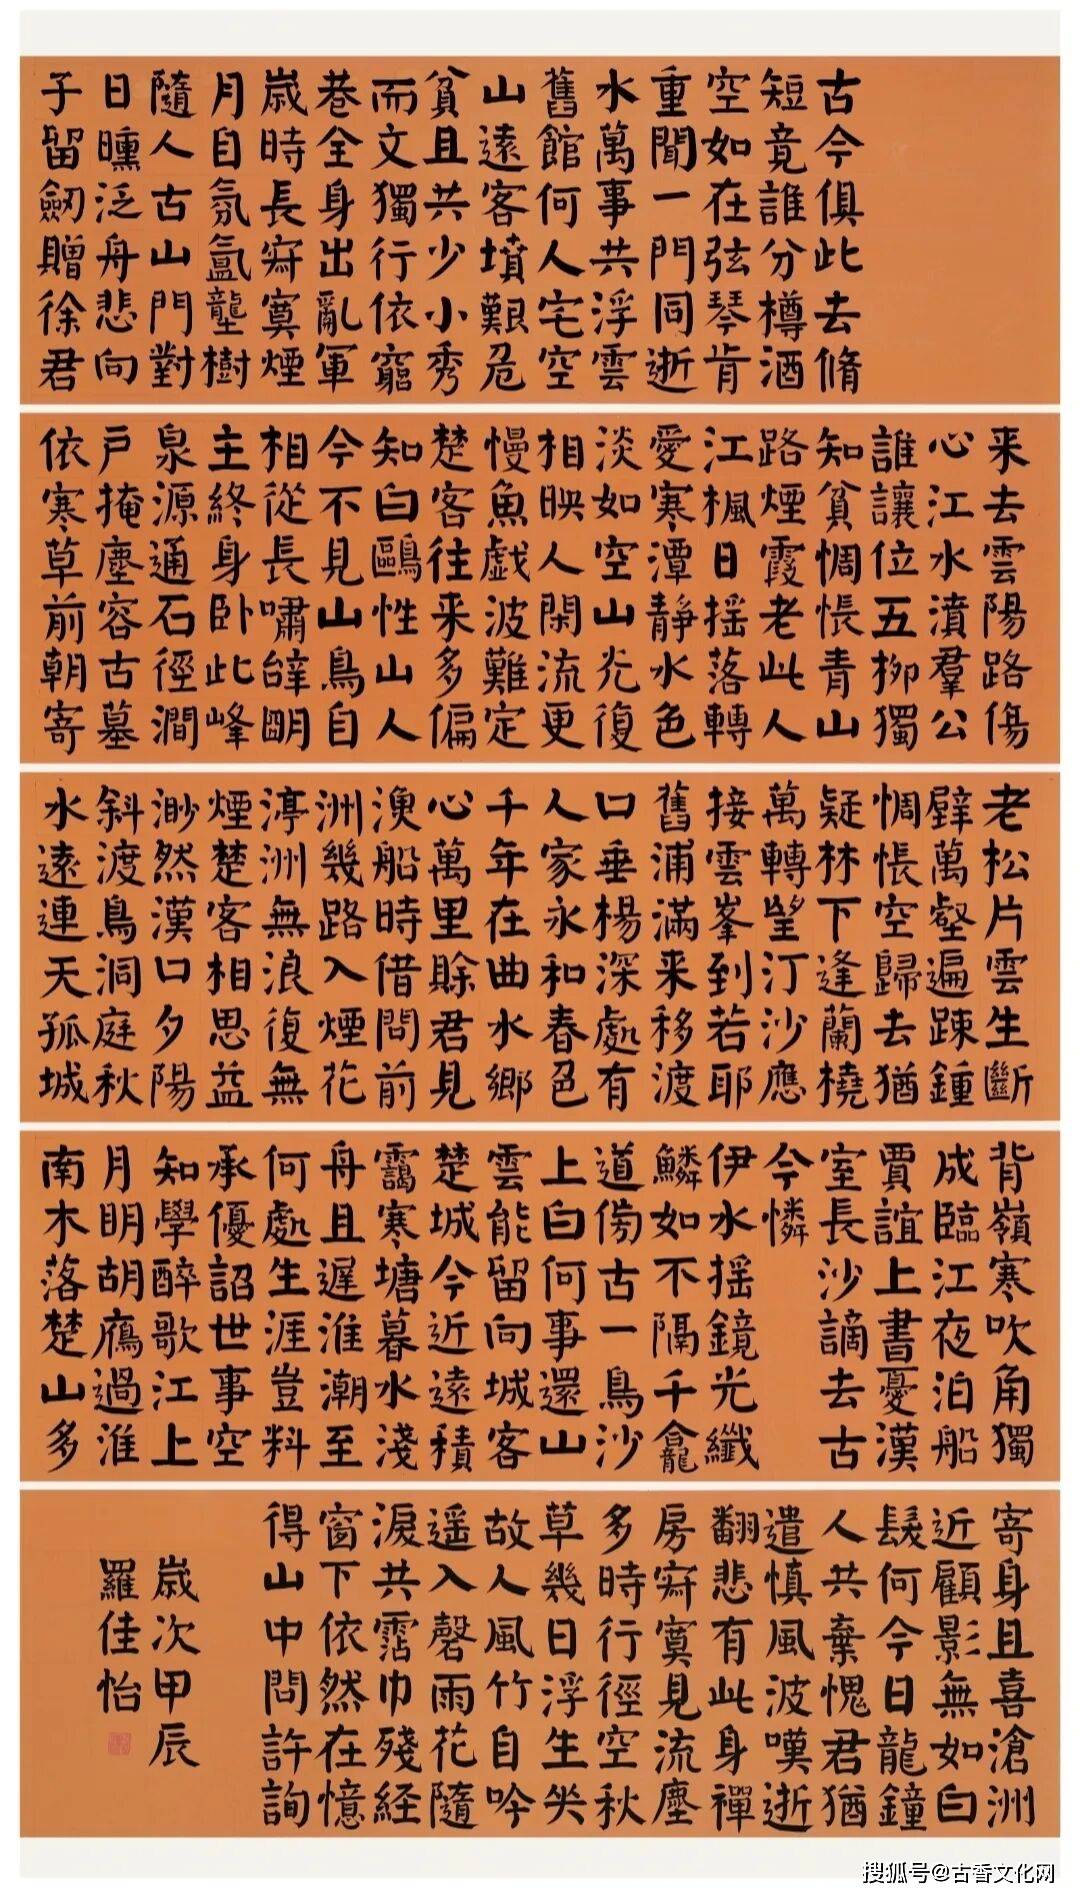 古今俱此去脩
短竟誰分樽酒
空如在弦琴肯
重聞一門同逝
水萬事共浮雲
舊館何人宅空
山遠客墳艱危
貧且共少小秀
而文獨行依窮
巷全身出亂軍
歲時長寂寞煙
月自氛氳壟樹
隨人古山門對
日曛泛舟悲向
子留劒贈徐君
来去雲陽路傷
心江水濆羣公
誰讓位五柳獨
知貧惆悵青山
路煙霞老此人
江楓日揺落轉
愛寒潭靜水色
淡如空山光復
相映人閑流更
慢魚戯波難定
楚客往来多偏
知白鷗性山人
今不見山鳥自
相從長嘯辭明
主終身卧此峰
泉源通石徑澗
戶掩塵容古墓
依寒草前朝寄
老松片雲生斷
壁萬壑遍踈鍾
惆悵空歸去猶
疑林下逢蘭橈
萬轉望汀沙應
接雲峯到若耶
舊浦滿来移渡
口垂楊深處有
人家永和春色
千年在曲水鄉
心萬里賒君見
漁船時借問前
洲幾路入煙花
渟洲無浪復無
煙楚客相思益
渺然漢口夕陽
斜渡鳥洞庭秋
水遠連天孤城
背嶺寒吹角獨
成臨江夜泊船
賈誼上書憂漢
室長沙謫去古
今憐
伊水揺鏡光纖
鱗如不隔千龕
道傍古一鳥沙
上白何事還山
雲能留向城客
楚城今近遠積
靄寒塘暮水淺
舟且遲淮潮至
何處生涯豈料
承優詔世事空
知學醉歌江上
月明胡鴈過淮
南木落楚山多
寄身且喜滄洲
近顧影無如白
髮何今日龍鐘
人共棄愧君猶
遣慎風波嘆逝
翻悲有此身禪
房寂寞見流塵
多時行徑空秋
草幾日浮生哭
故人風竹自吟
遥入磬雨花隨
淚共霑巾殘経
窗下依然在憶
得山中問許詢
歲次甲辰
羅佳怡
搜狐号@古香文化网